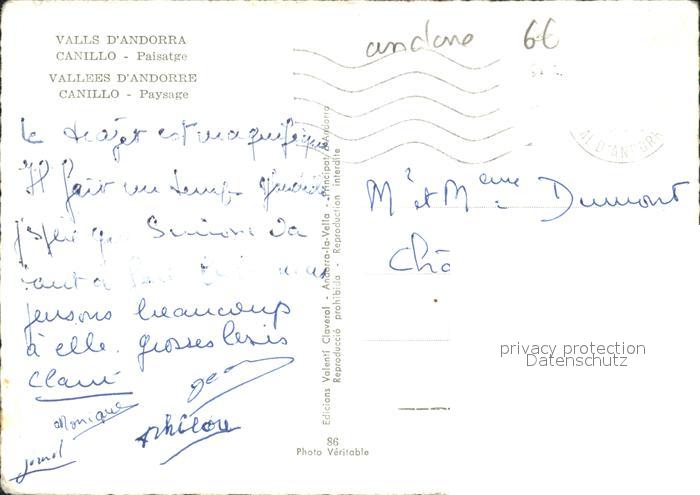 VALLS D'ANDORRA
CANILLO - Paisatge
VALLEES D'ANDORRE
CANILLO - Paysage
andorre 6€
AL D'ANDORRA
le trajet est magnifique
Il fait un temps
j'espère que Simone va
pensons beaucoup
à elle. grosses bises
Monique
Mr et Mme Dumont
Edicions Valentí Claverol - Andorra-la-Vella - Principat d'Andorra
Reproducció prohibida - Reproduction interdite
86
Photo Véritable
privacy protection
Datenschutz